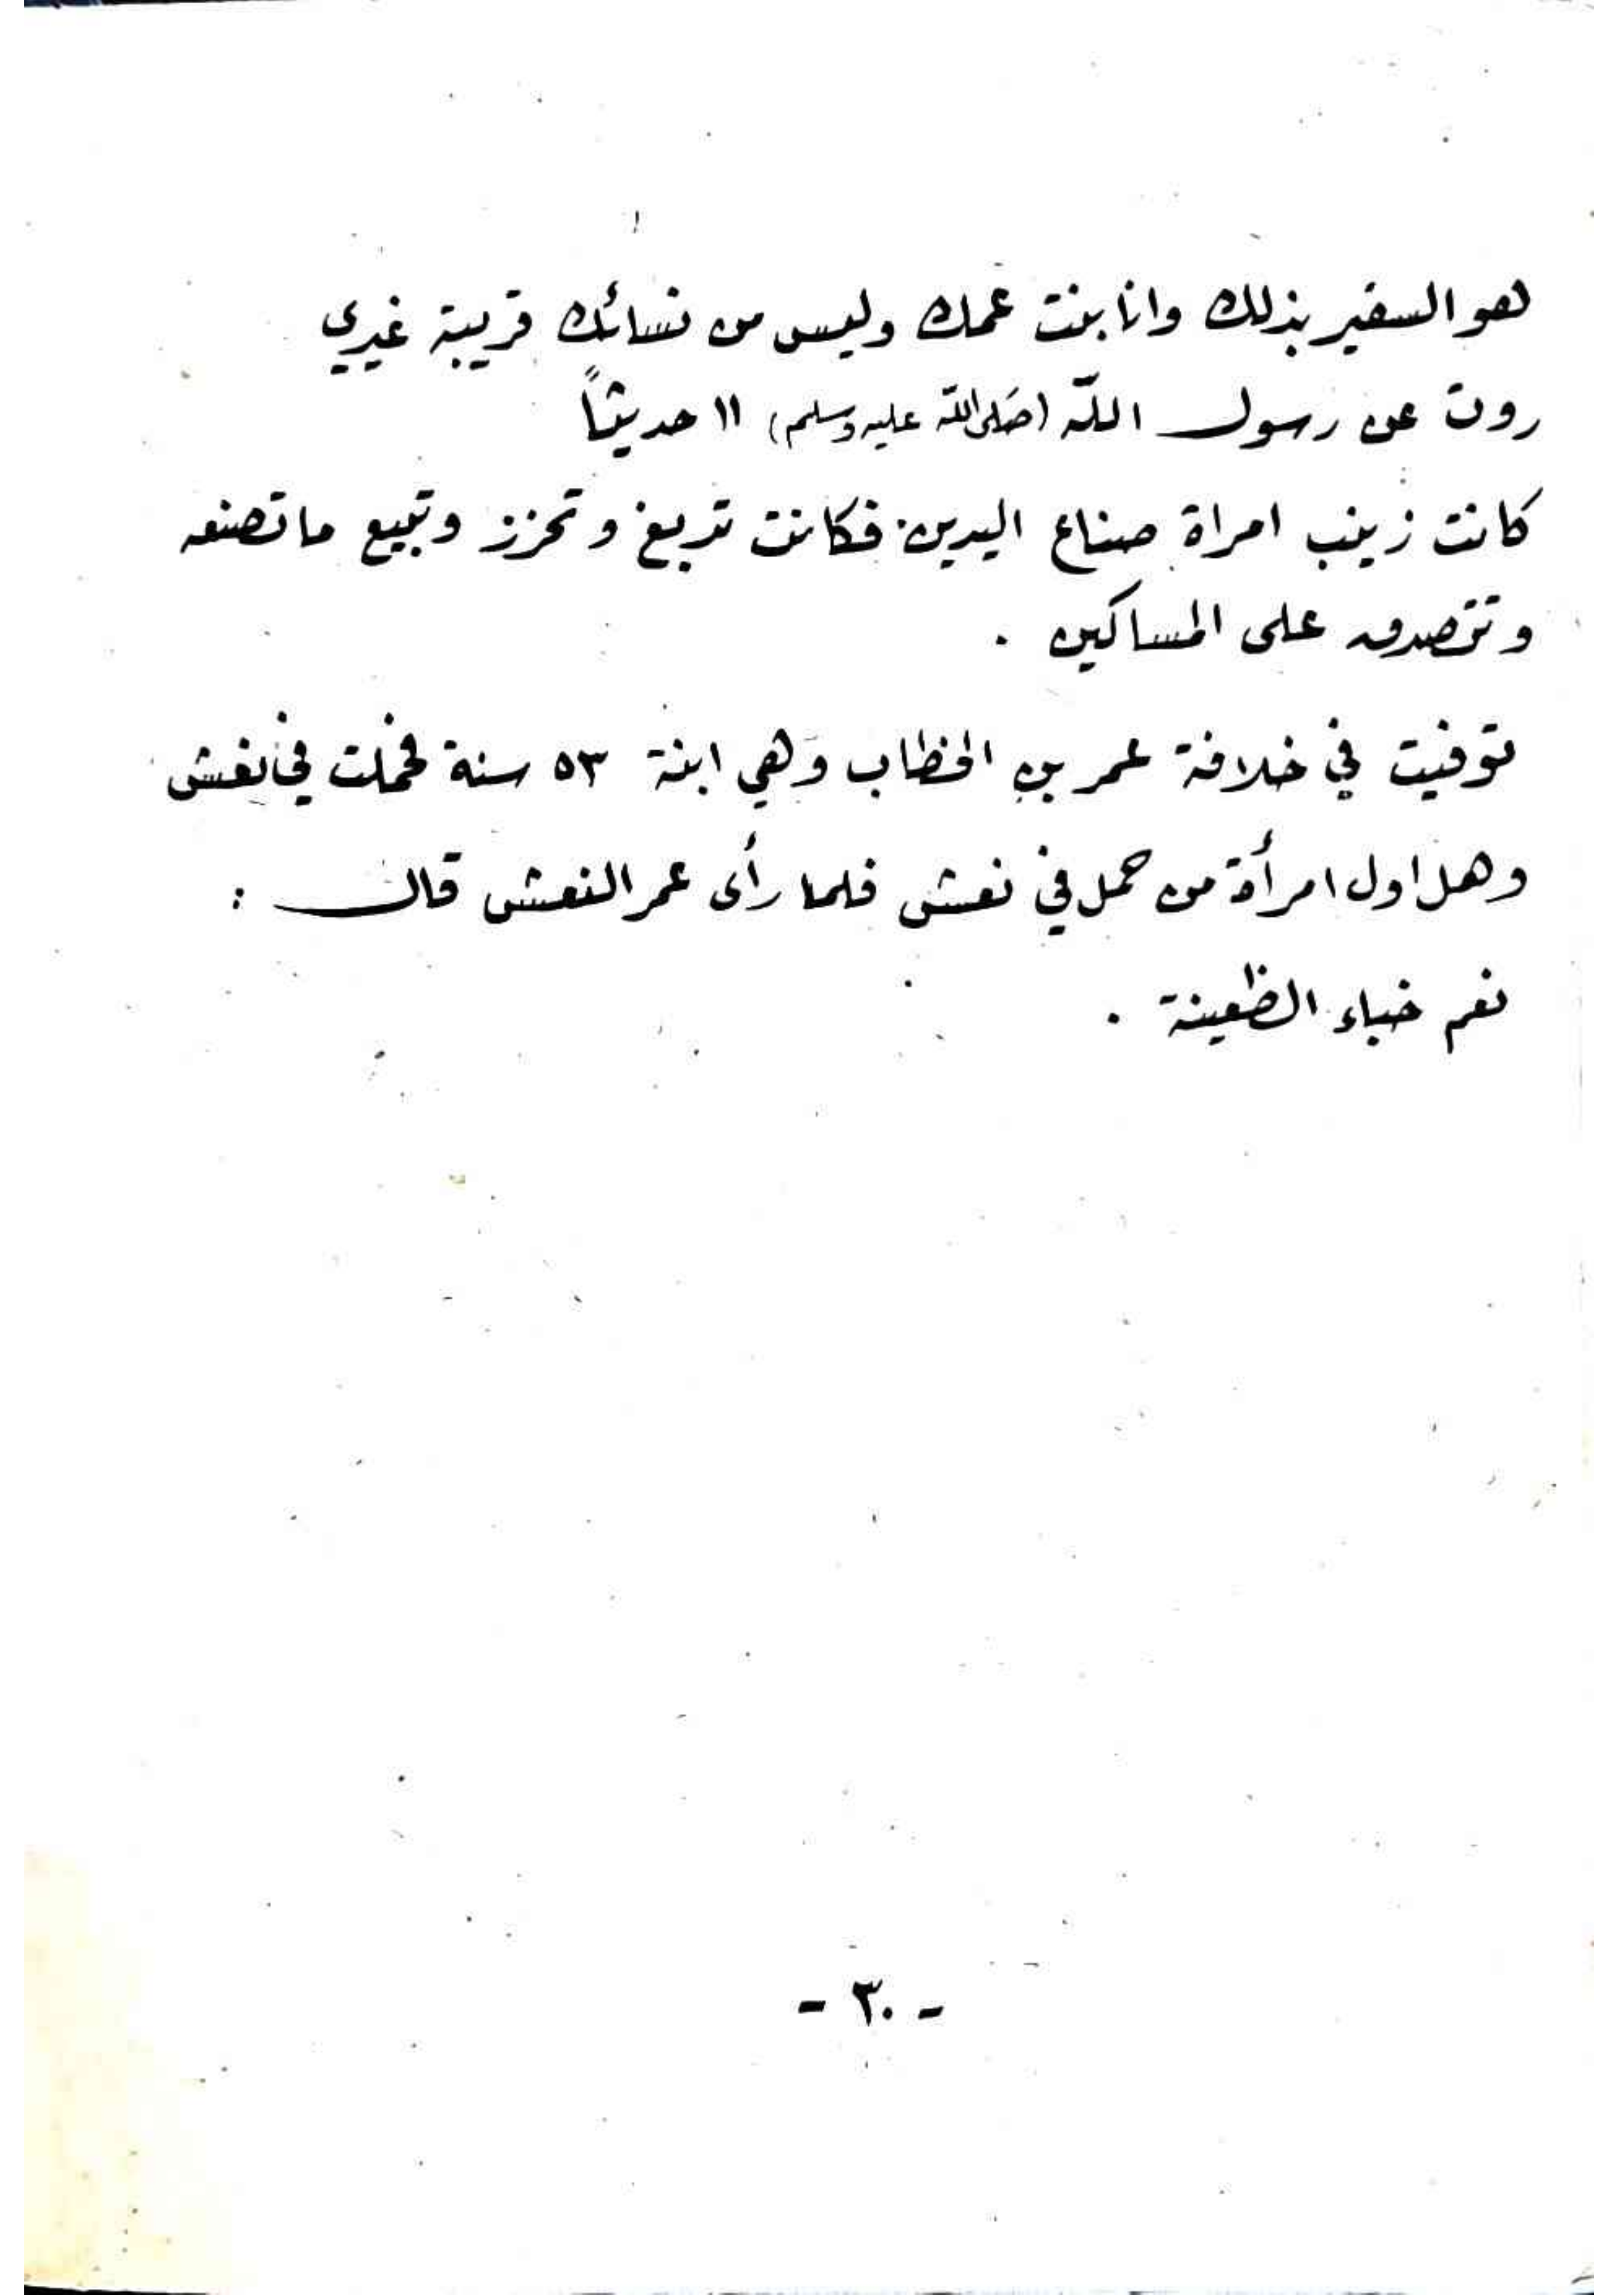 هو السفير بذلك وانا بنت عمك وليس من نسائك قريبة غيري
روت عن رسول اللّه (صَلى اللّه عليه وسلم) ١١ حديثاً
كانت زينب امراة صناع اليدين فكانت تدبغ وتخرز وتبيع ما تصنعه
وتتصدق على المساكين .
توفيت في خلافة عمر بن الخطاب وهي ابنة ٥٣ سنة فحملت في نعش
وهل اول امرأة من حمل في نعش فلما رأى عمر النعش قال :
نعم خباء الظعينة .
- ٣٠ -